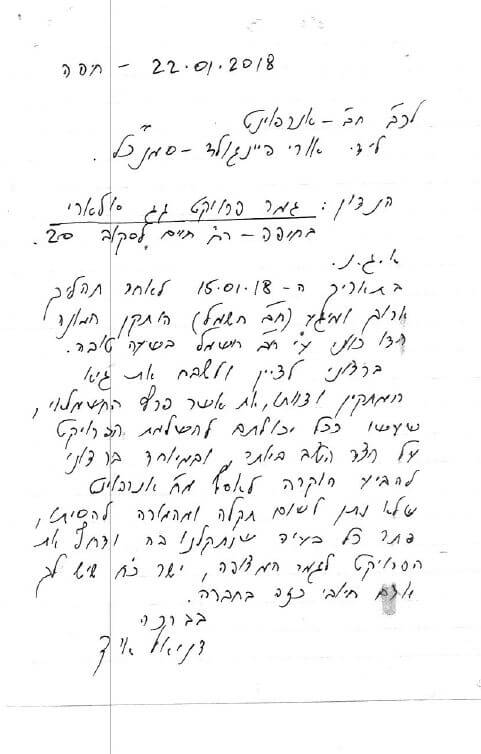 חיפה - 22.01.2018
לכב' חב' - אנרפוינט
ליד: אורי פיינגולד - סמנכ"ל.
הנדון: גמר פרויקט גג סולארי
בחיפה - רח' חיים לסקוב 20.
א.ג.נ.
בתאריך ה-15.01.18 לאחר תהליך
ארוך ומייגע (חב' חשמל) הותקן המונה
הדו כווני ע"י חב' חשמל בשעה טובה.
ברצוני לציין ולשבח את גיא
המתקין וצוותו, את אשר פרץ החשמלאי,
שעשו ככל יכולתם להשלמת הפרויקט
על הצד הטוב ביותר, ובמיוחד ברצוני
להביע הוקרה לאסף מח' אנרפוינט
שלא נתן לשום תקלה ומהמורה להסיטו,
פתר כל בעיה שנתקלנו בה ודחף את
הפרויקט לגמר המצופה, ישר כח שיש לך
אדם חיובי כזה בחברה.
בברכה
דניאל